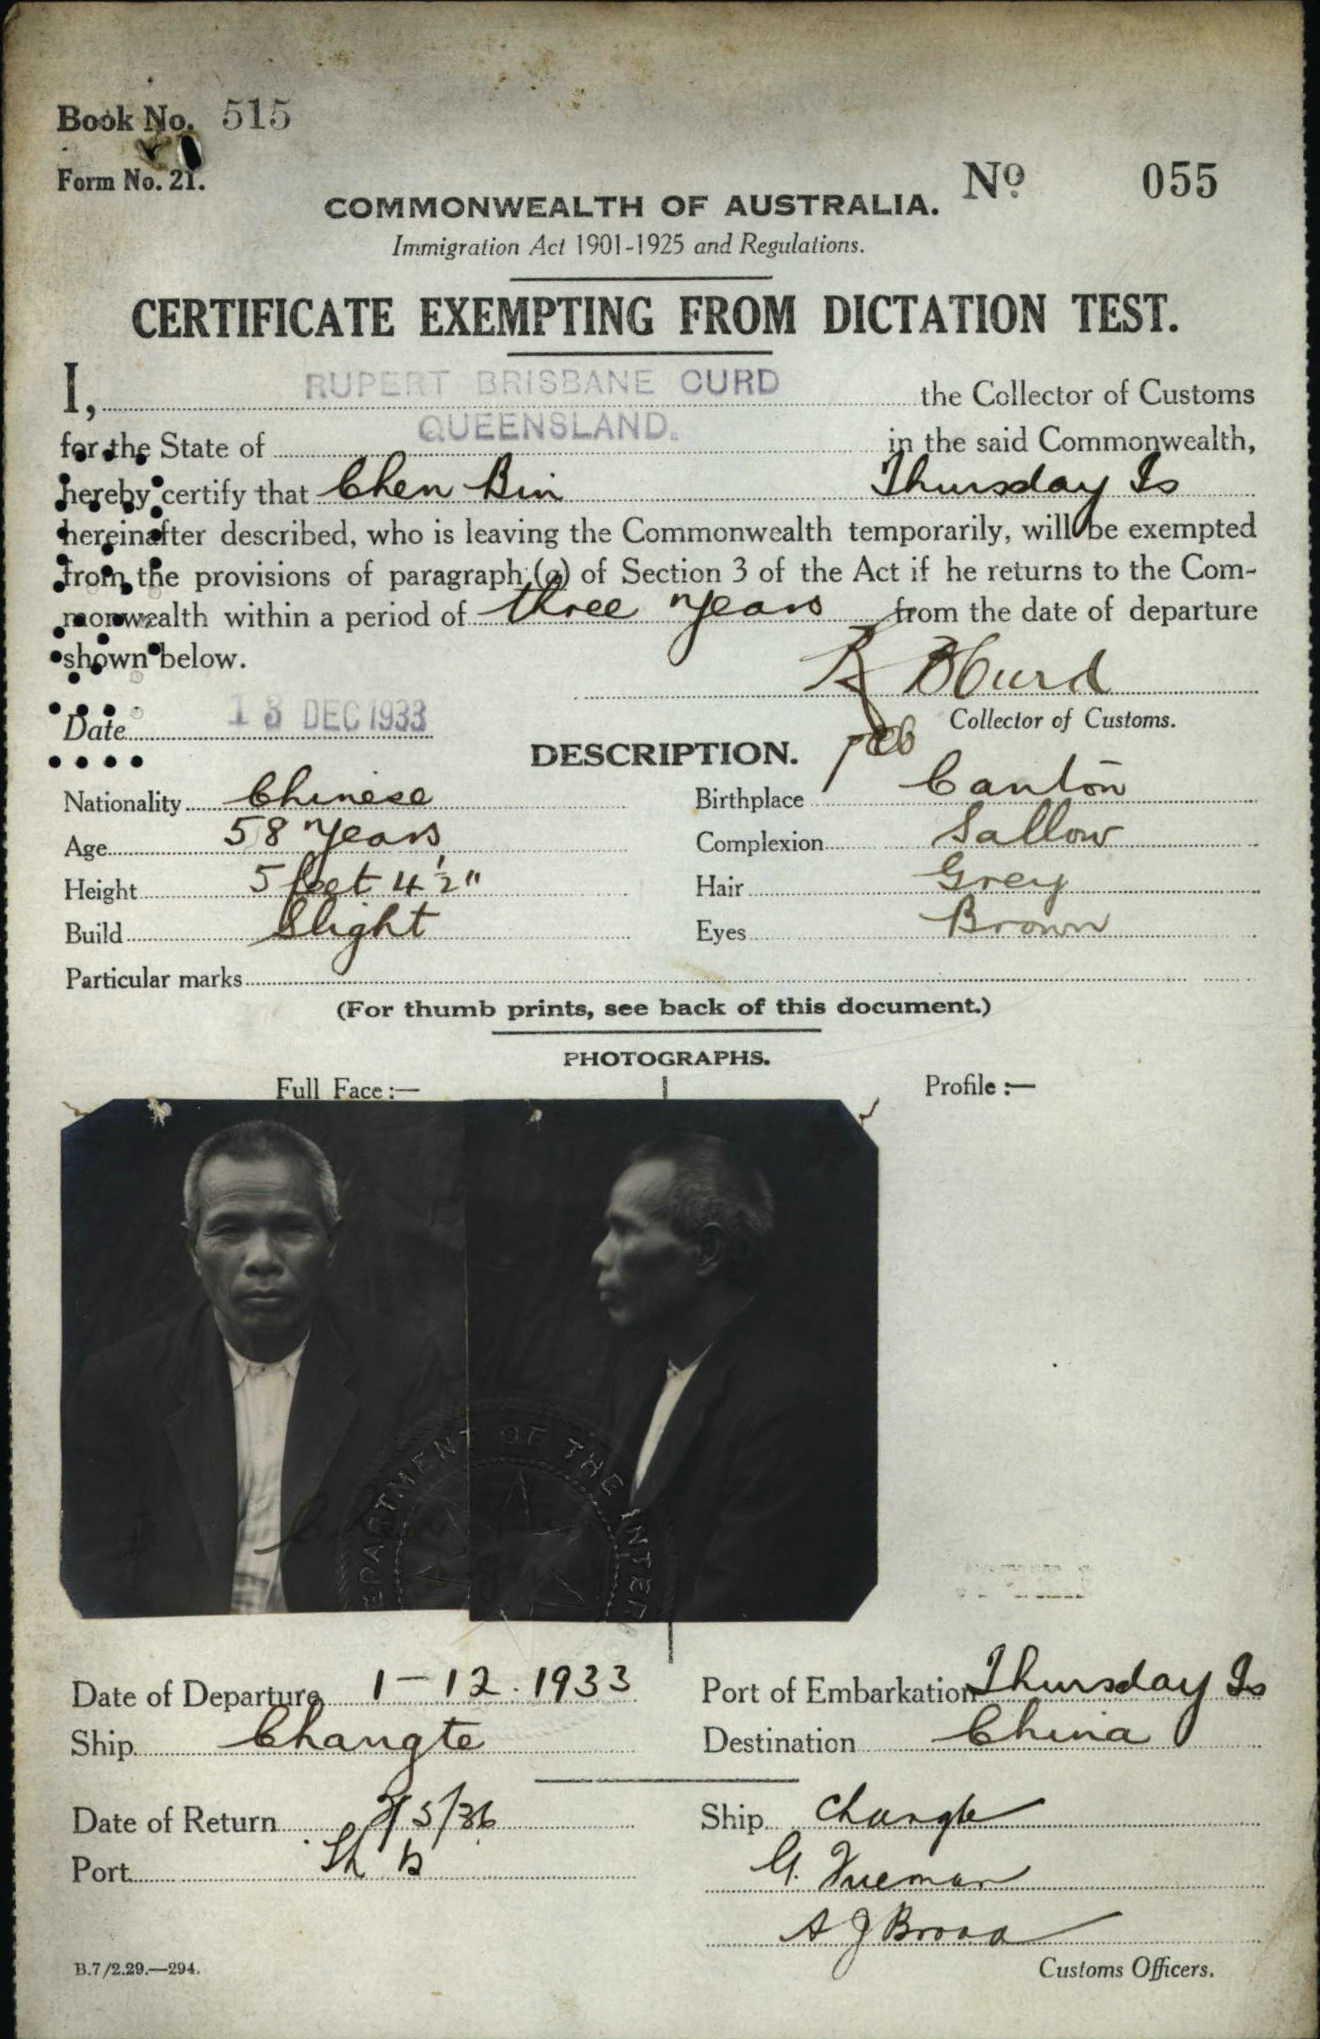 Book No. 515
Form No. 21.
No 055
COMMONWEALTH OF AUSTRALIA.
Immigration Act 1901-1925 and Regulations.
CERTIFICATE EXEMPTING FROM DICTATION TEST.
I, RUPERT BRISBANE CURD the Collector of Customs
for the State of QUEENSLAND. in the said Commonwealth,
hereby certify that Chen Bin Thursday Is
hereinafter described, who is leaving the Commonwealth temporarily, will be exempted
from the provisions of paragraph (a) of Section 3 of the Act if he returns to the Com-
monwealth within a period of three years from the date of departure
shown below.
R B Curd
Date 13 DEC 1933 Collector of Customs.
DESCRIPTION.
Nationality Chinese Birthplace Canton
Age 58 years Complexion Sallow
Height 5 feet 4 1/2" Hair Grey
Build Slight Eyes Brown
Particular marks
(For thumb prints, see back of this document.)
PHOTOGRAPHS.
Full Face :— Profile :—
DEPARTMENT OF THE INTERIOR
Date of Departure 1-12.1933 Port of Embarkation Thursday Is
Ship Changte Destination China
Date of Return /5/36 Ship Changte
Port Th Is G.
A J
B.7/2.29.—294. Customs Officers.